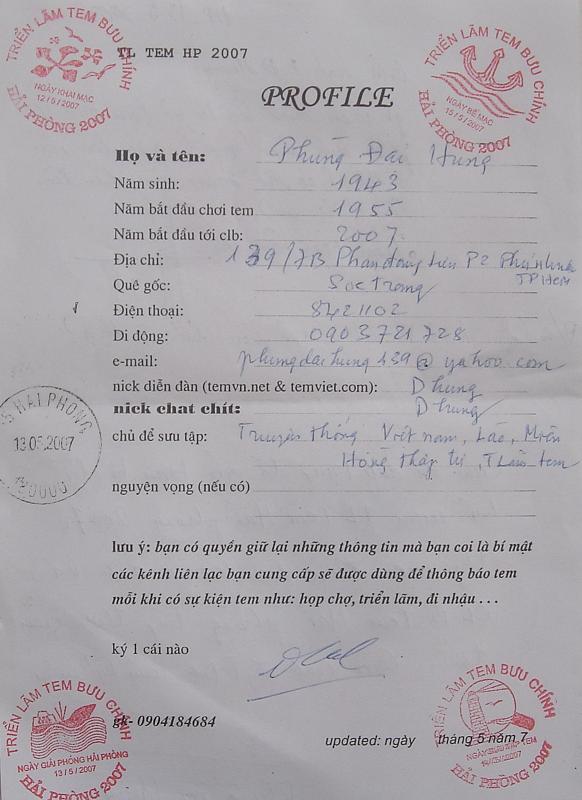 TRIỂN LÃM TEM BƯU CHÍNH
NGÀY KHAI MẠC
12/5/2007
HẢI PHÒNG 2007
TL TEM HP 2007
TRIỂN LÃM TEM BƯU CHÍNH
NGÀY BẾ MẠC
15/5/2007
HẢI PHÒNG 2007
PROFILE
Họ và tên: Phùng Đại Hưng
Năm sinh: 1943
Năm bắt đầu chơi tem 1955
Năm bắt đầu tới clb: 2007
Địa chỉ: 139/7B Phan đăng lưu P2 Phú nhuận
TP HCM
Quê gốc: Sóc trăng
Điện thoại: 8421102
Di động: 0903721728
e-mail: phungdaihung139@yahoo.com
nick diễn đàn (temvn.net & temviet.com): Dhung
nick chat chít: Dhung
HAI PHONG
13.05.2007
chủ đề sưu tập: Truyền thống Việt nam, Lào, Miên
Hồng thập tự, T Lãm tem
nguyện vọng (nếu có)
lưu ý: bạn có quyền giữ lại những thông tin mà bạn coi là bí mật
các kênh liên lạc bạn cung cấp sẽ được dùng để thông báo tem
mỗi khi có sự kiện tem như: họp chợ, triển lãm, đi nhậu . . .
ký 1 cái nào
TRIỂN LÃM TEM BƯU CHÍNH
NGÀY GIẢI PHÓNG HẢI PHÒNG
13/5/2007
HẢI PHÒNG 2007
gk- 0904184684
updated: ngày tháng 5 năm 7
TRIỂN LÃM TEM BƯU CHÍNH
HẢI PHÒNG 2007